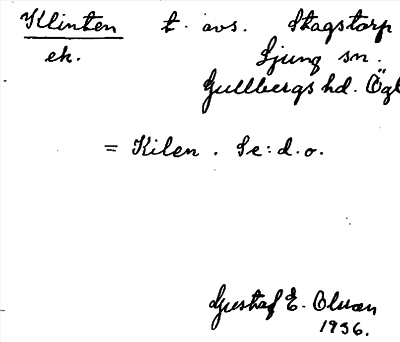 Klinten t. avs. Stagstorp
ek. Ljung sn.
Gullbergs hd. Ögl
= Kilen. Se: d.o.
Gustaf E. Olsson
1936.